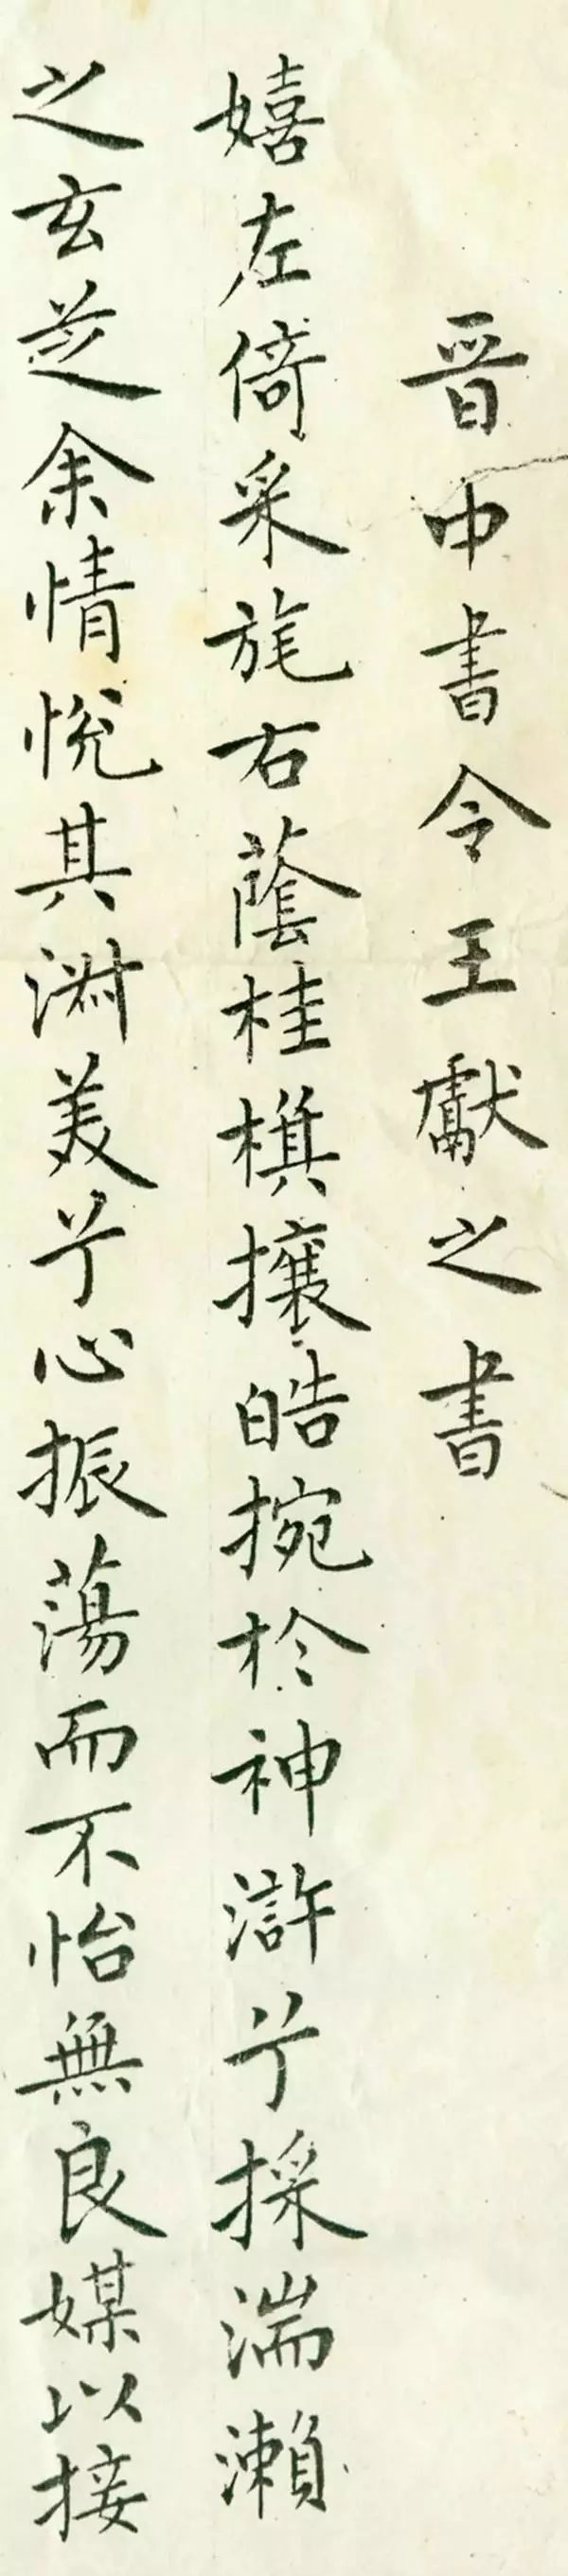 晋中書令王獻之書
嬉左倚采旄右蔭桂棋攘皓捥於神滸兮採湍瀨
之玄芝余情悅其淑美兮心振蕩而不怡無良媒以接